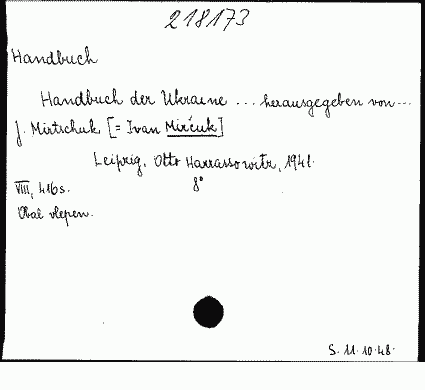 218173
Handbuch
Handbuch der Ukraine ... herausgegeben von ...
J. Mirtschuk [= Ivan Mirčuk]
Leipzig, Otto Harrassowitz, 1941.
VIII, 416 s. 8°
Obal vlepen.
S. 11.10.48.